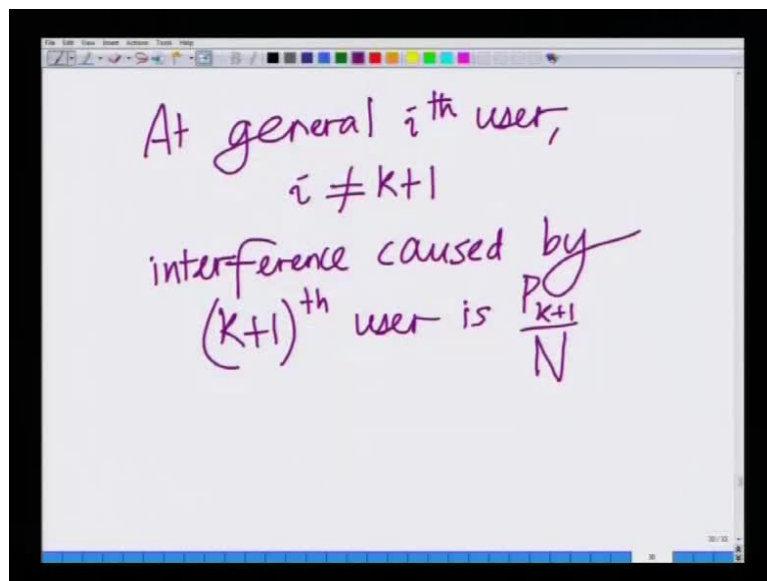 File Edit View Insert Actions Tools Help
At general i^th user,
i ≠ K+1
interference caused by
(K+1)^th user is P_{K+1}/N